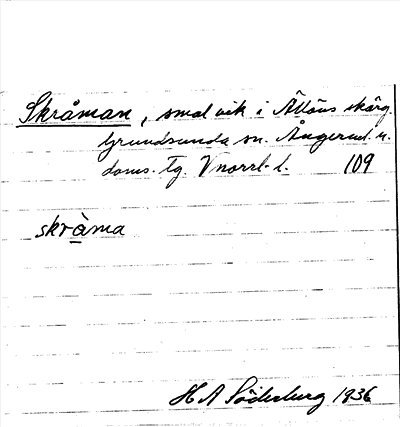 Skråman, smal vik i Ällöns skärg.
Grundsunda sn. Ångerml. n.
doms. tg. Vnorrl. l. 109
skràma
H A Söderberg 1936